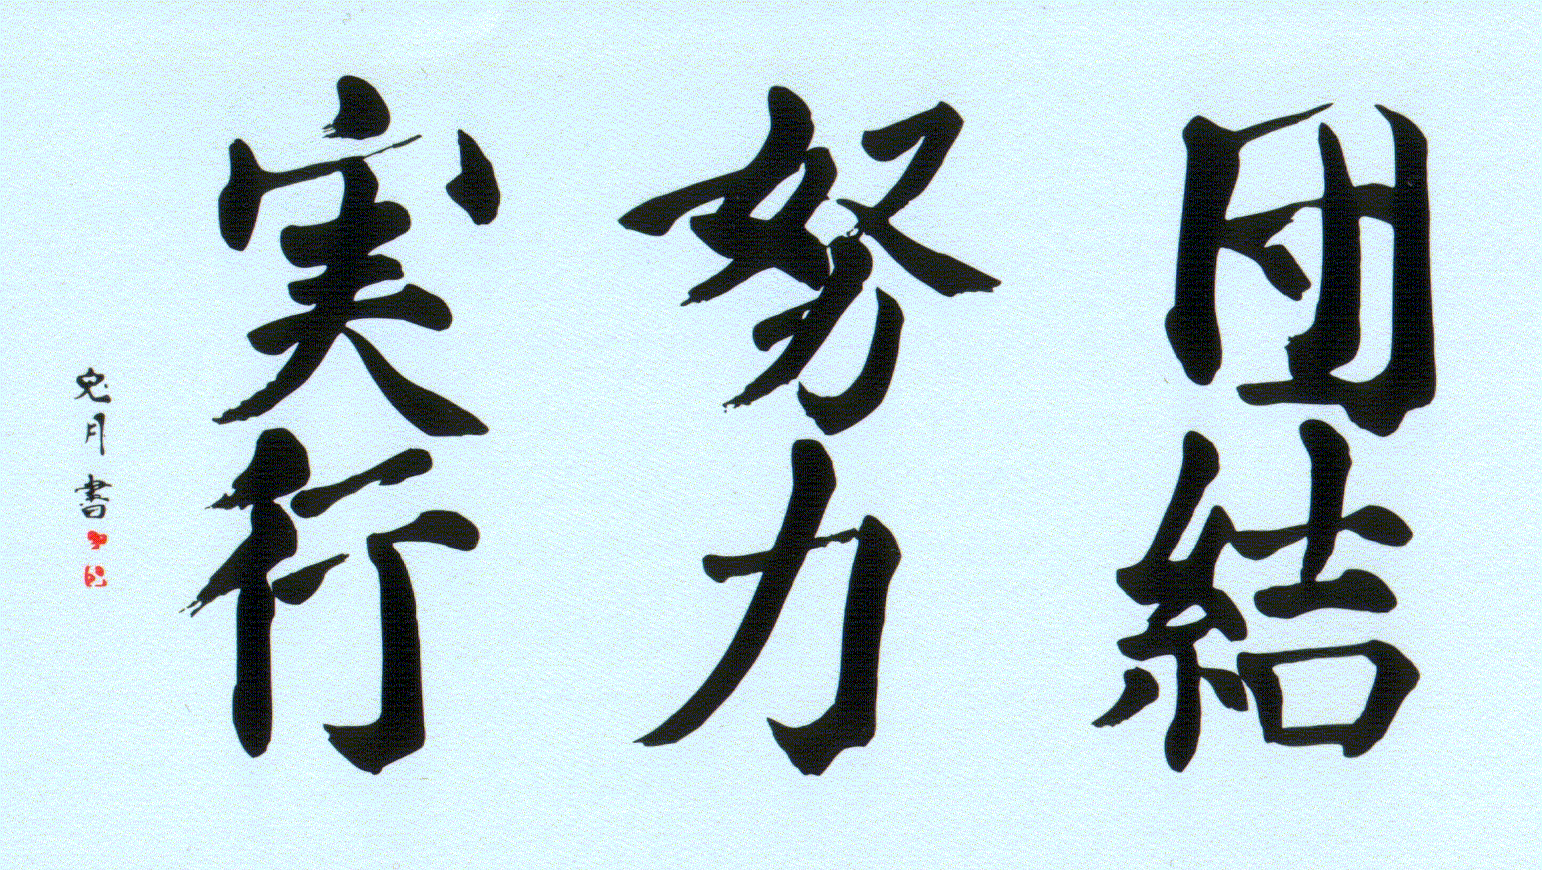 団結
努力
実行
兎月書